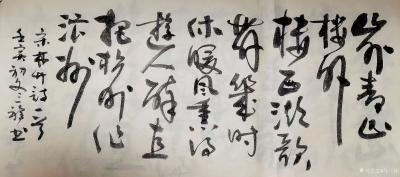 山外青山
楼外
楼西湖歌
舞几时
休暖风熏得
游人醉直
把杭州作
汴州
宋林升诗一首
壬寅初夏三难书